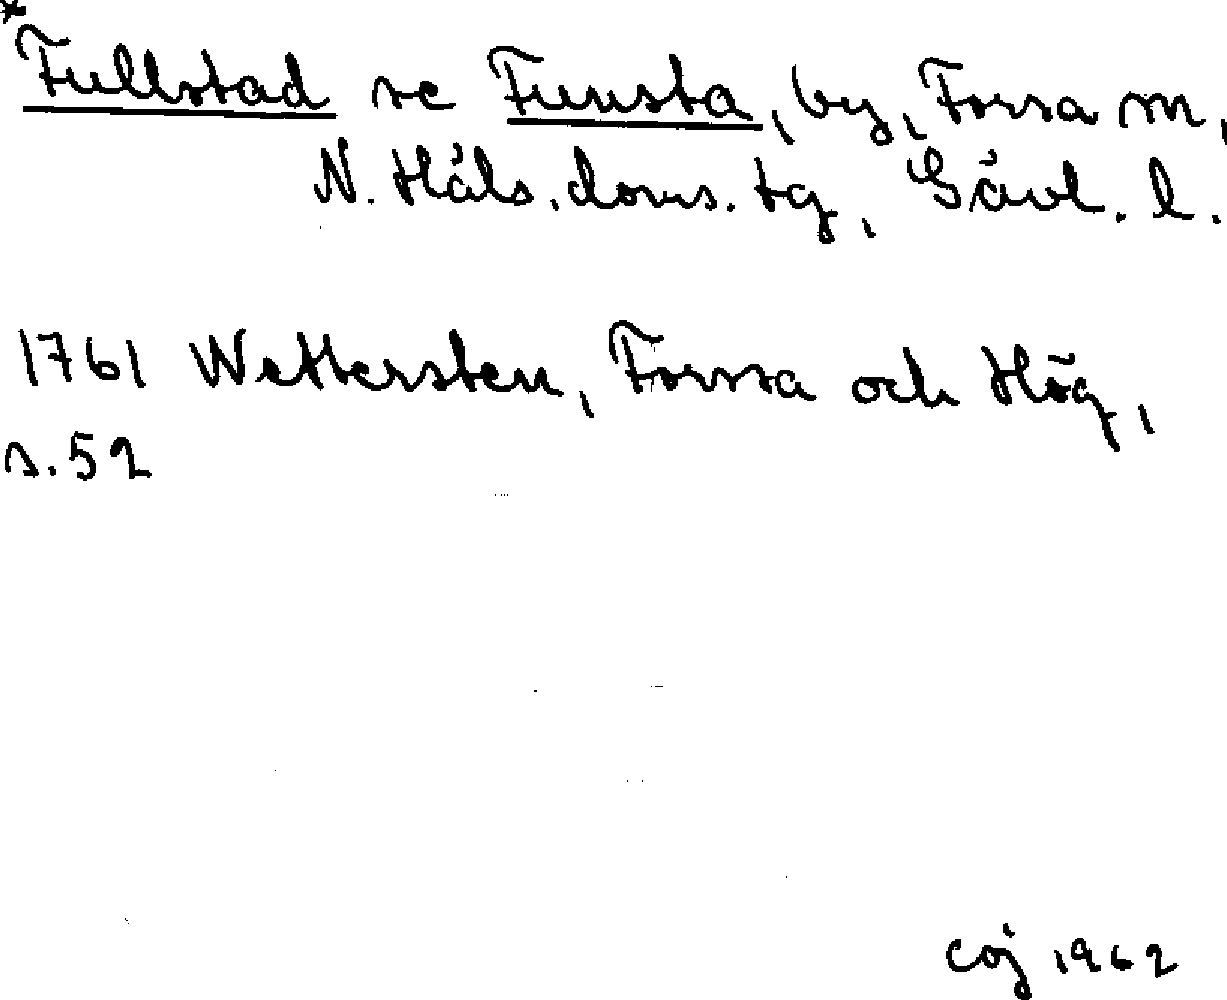 *Fullstad se Funsta, by, Forsa sn,
N. Häls. doms. tg, Gävl. l.
1761 Wettersten, Forssa och Hög,
s. 52
coj 1962